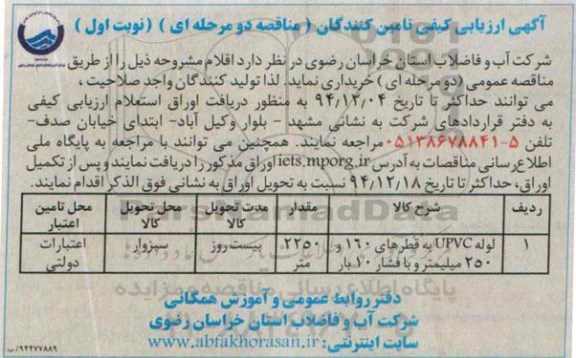 آگهی ارزیابی کیفی تامین کنندگان ( مناقصه دو مرحله ای ) ( نوبت اول )
شرکت آب و فاضلاب استان خراسان رضوی در نظر دارد اقلام مشروحه ذیل را از طریق
مناقصه عمومی (دو مرحله ای) خریداری نماید. لذا تولید کنندگان واجد صلاحیت ،
می توانند حداکثر تا تاریخ ۹۴/۱۲/۰۴ به منظور دریافت اوراق استعلام ارزیابی کیفی
به دفتر قراردادهای شرکت به نشانی مشهد - بلوار وکیل آباد- ابتدای خیابان صدف-
تلفن ۵-۰۵۱۳۸۶۷۸۸۴۱ مراجعه نمایند. همچنین می توانند با مراجعه به پایگاه ملی
اطلاع رسانی مناقصات به آدرس iets.mporg.ir اوراق مذکور را دریافت نمایند و پس از تکمیل
اوراق، حداکثر تا تاریخ ۹۴/۱۲/۱۸ نسبت به تحویل اوراق به نشانی فوق الذکر اقدام نمایند.
ردیف شرح کالا مقدار مدت تحویل کالا محل تحویل کالا محل تامین اعتبار
۱ لوله UPVC به قطرهای ۱۶۰ و ۲۵۰ میلیمتر و با فشار ۱۰ بار ۲۲۵۰ متر بیست روز سبزوار اعتبارات دولتی
دفتر روابط عمومی و آموزش همگانی
شرکت آب و فاضلاب استان خراسان رضوی
سایت اینترنتی: www.abfakhorasan.ir
۹۴۲۷۷۸۸۹/ب